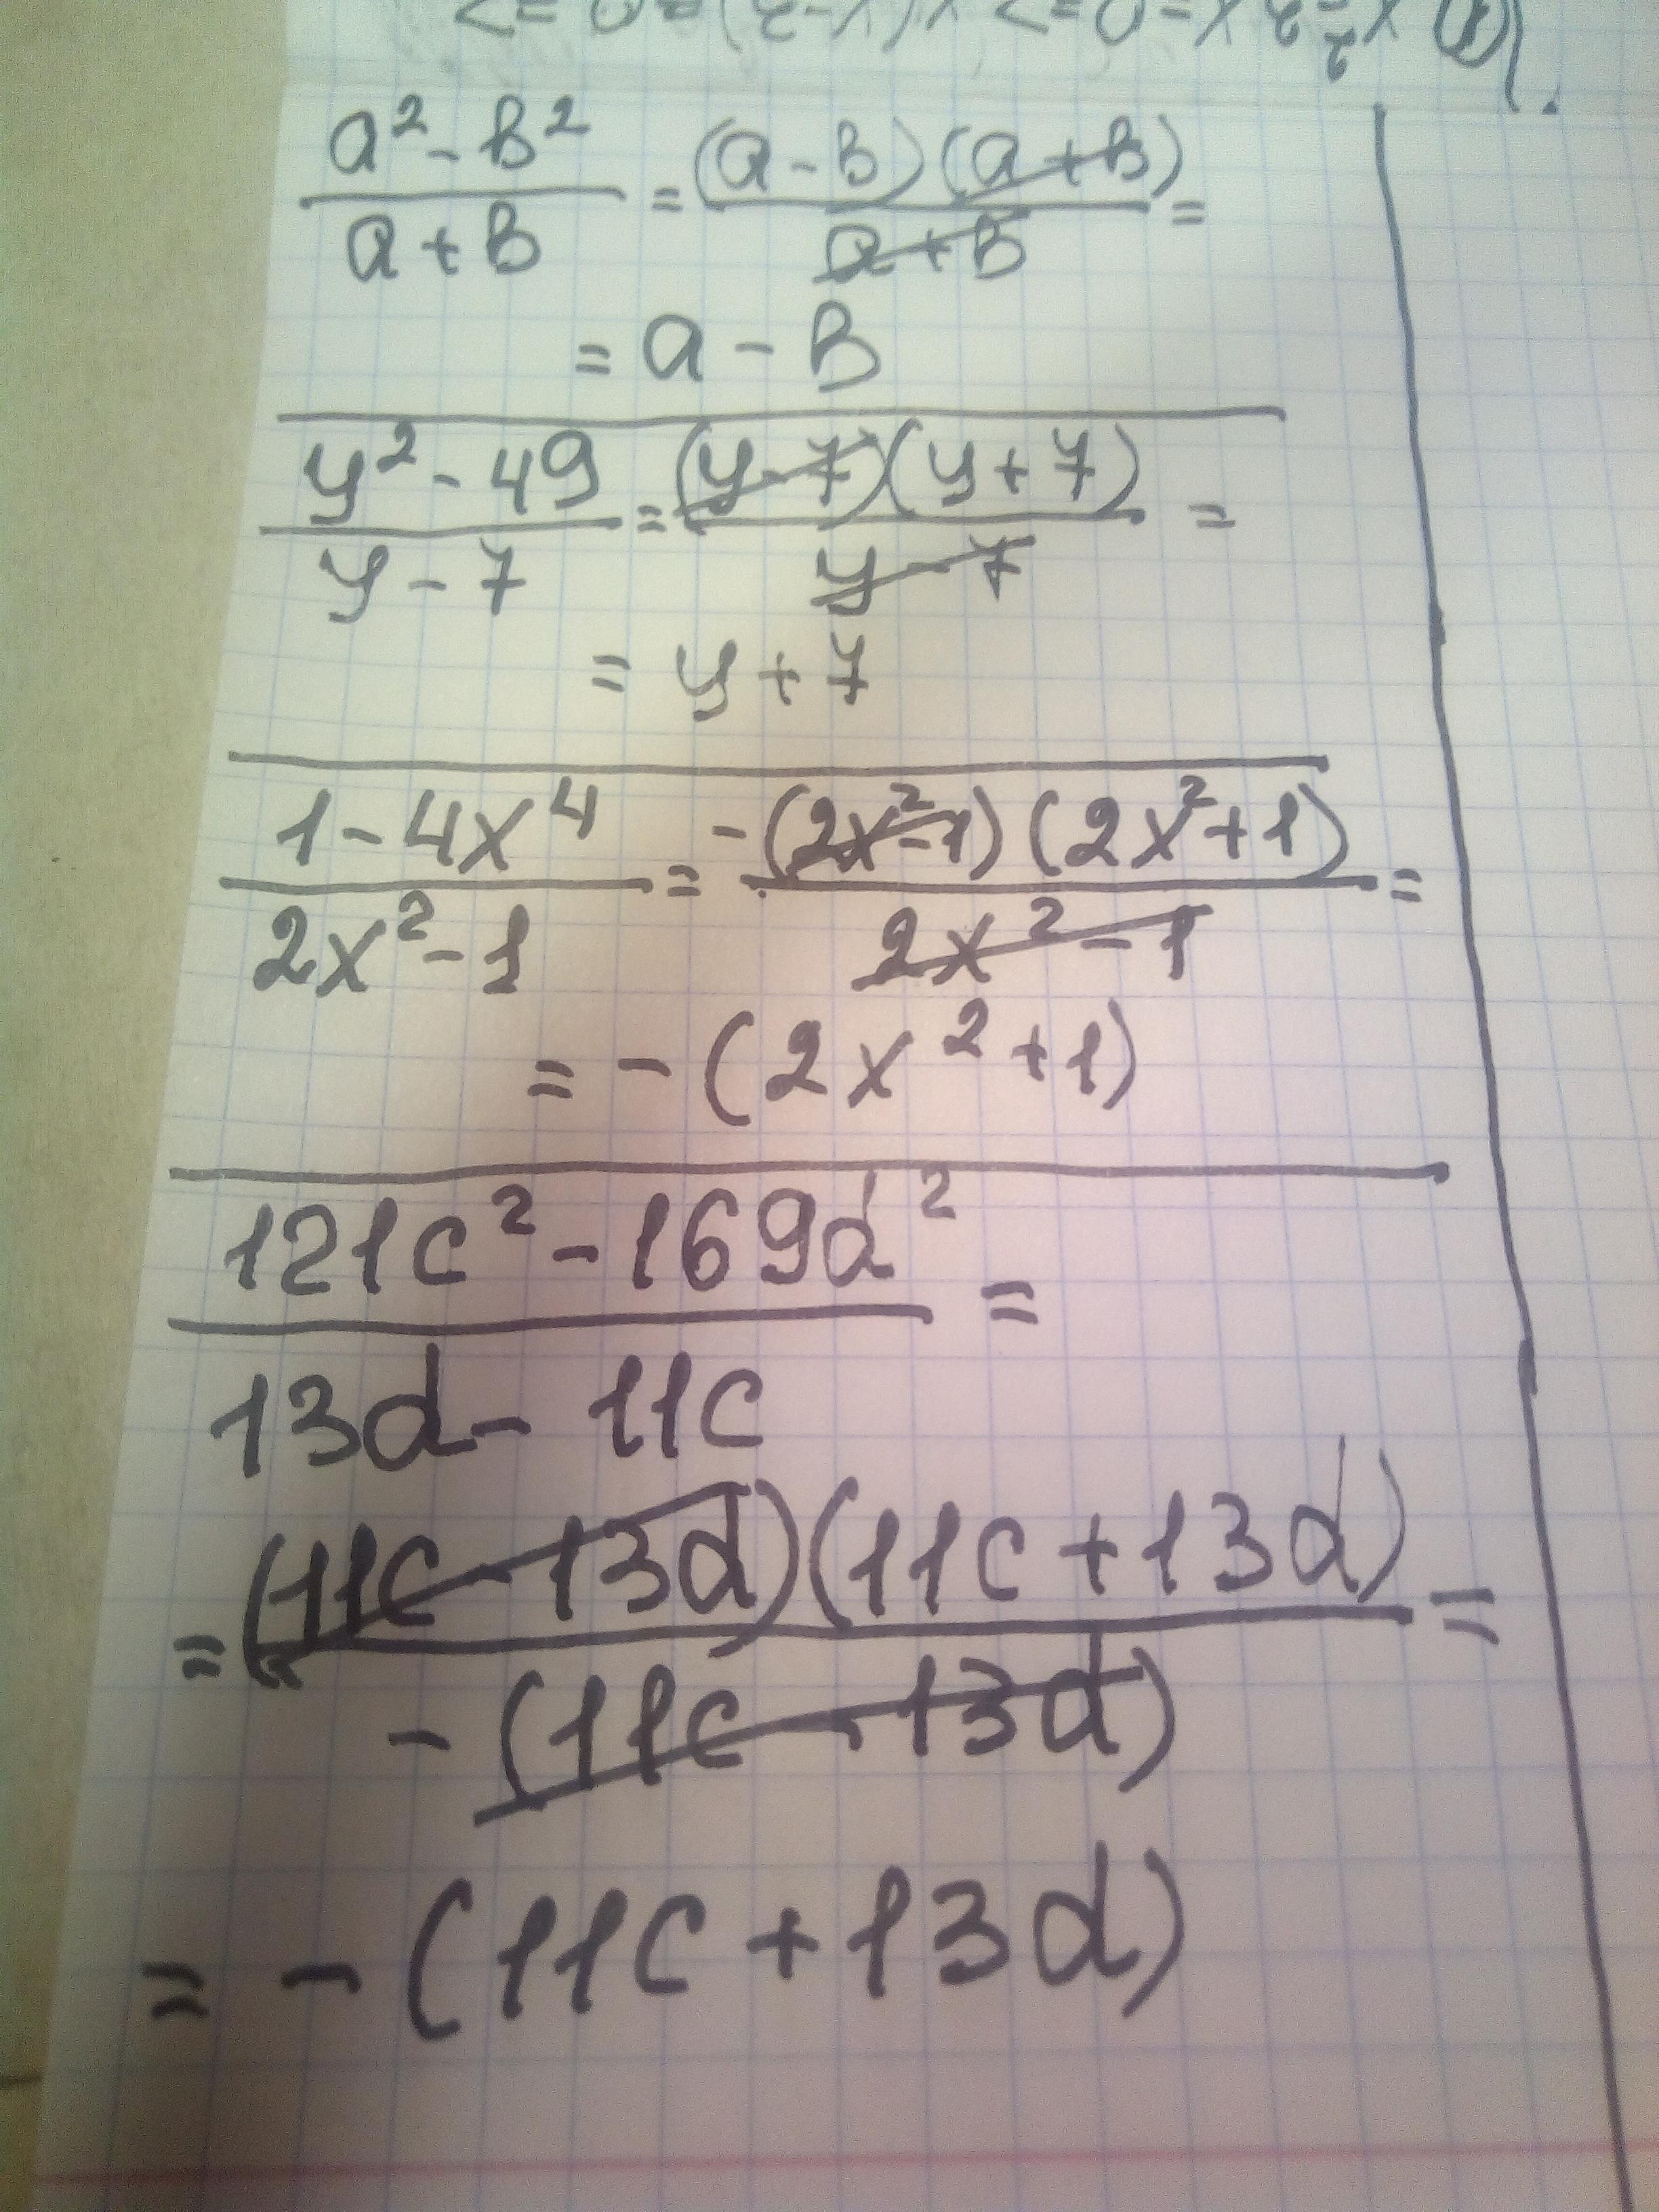 a² - b² / a + b = (a - b)(a + b) / a + b =
= a - b
y² - 49 / y - 7 = (y - 7)(y + 7) / y - 7 =
= y + 7
1 - 4x⁴ / 2x² - 1 = -(2x² - 1)(2x² + 1) / 2x² - 1 =
= -(2x² + 1)
121c² - 169d² / 13d - 11c =
= (11c - 13d)(11c + 13d) / -(11c - 13d) =
= -(11c + 13d)